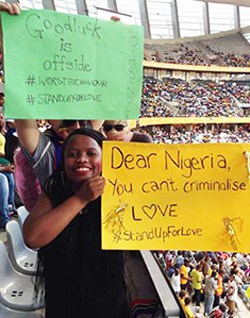 Goodluck
is
offside
#WORSTBEHAVIOUR
#STANDUPFORLOVE
Dear Nigeria,
You can't criminalise
L♡VE
#StandUpForLove